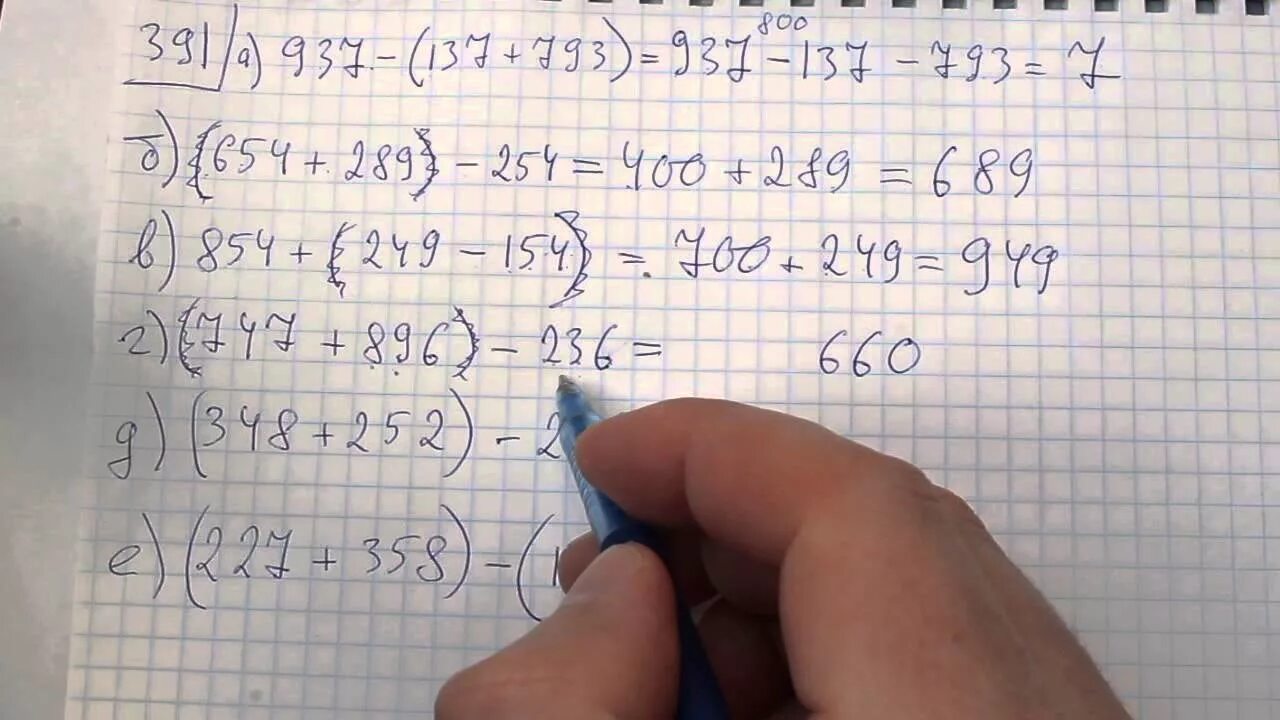 391 а) 937 - (137 + 793) = 937 - 137 - 793 = 7
800
б) (654 + 289) - 254 = 400 + 289 = 689
в) 854 + (249 - 154) = 700 + 249 = 949
г) (747 + 896) - 236 = 660
д) (348 + 252) - 2
е) (227 + 358) - (1